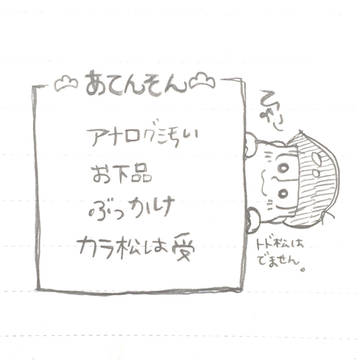 あてんそん
ひょこ
アナログきちい
お下品
ぶっかけ
カラ松は受
トド松は
でません。